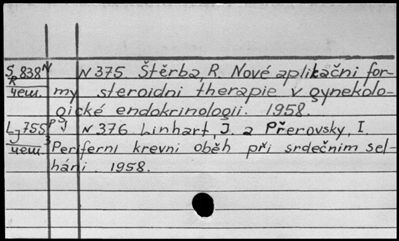 S 838 N N 375 Štěrba, R. Nové aplikační for-
R
чет. my steroidní therapie v gynekolo-
gické endokrinologii. 1958.
L 755 N 376 Linhart, J. a Přerovsky, I.
J
чет. Periferní krevní oběh při srdečním sel-
hání. 1958.